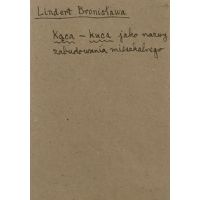 Lindert Bronisława
Kąca – kuca jako nazwy
zabudowania mieszkalnego